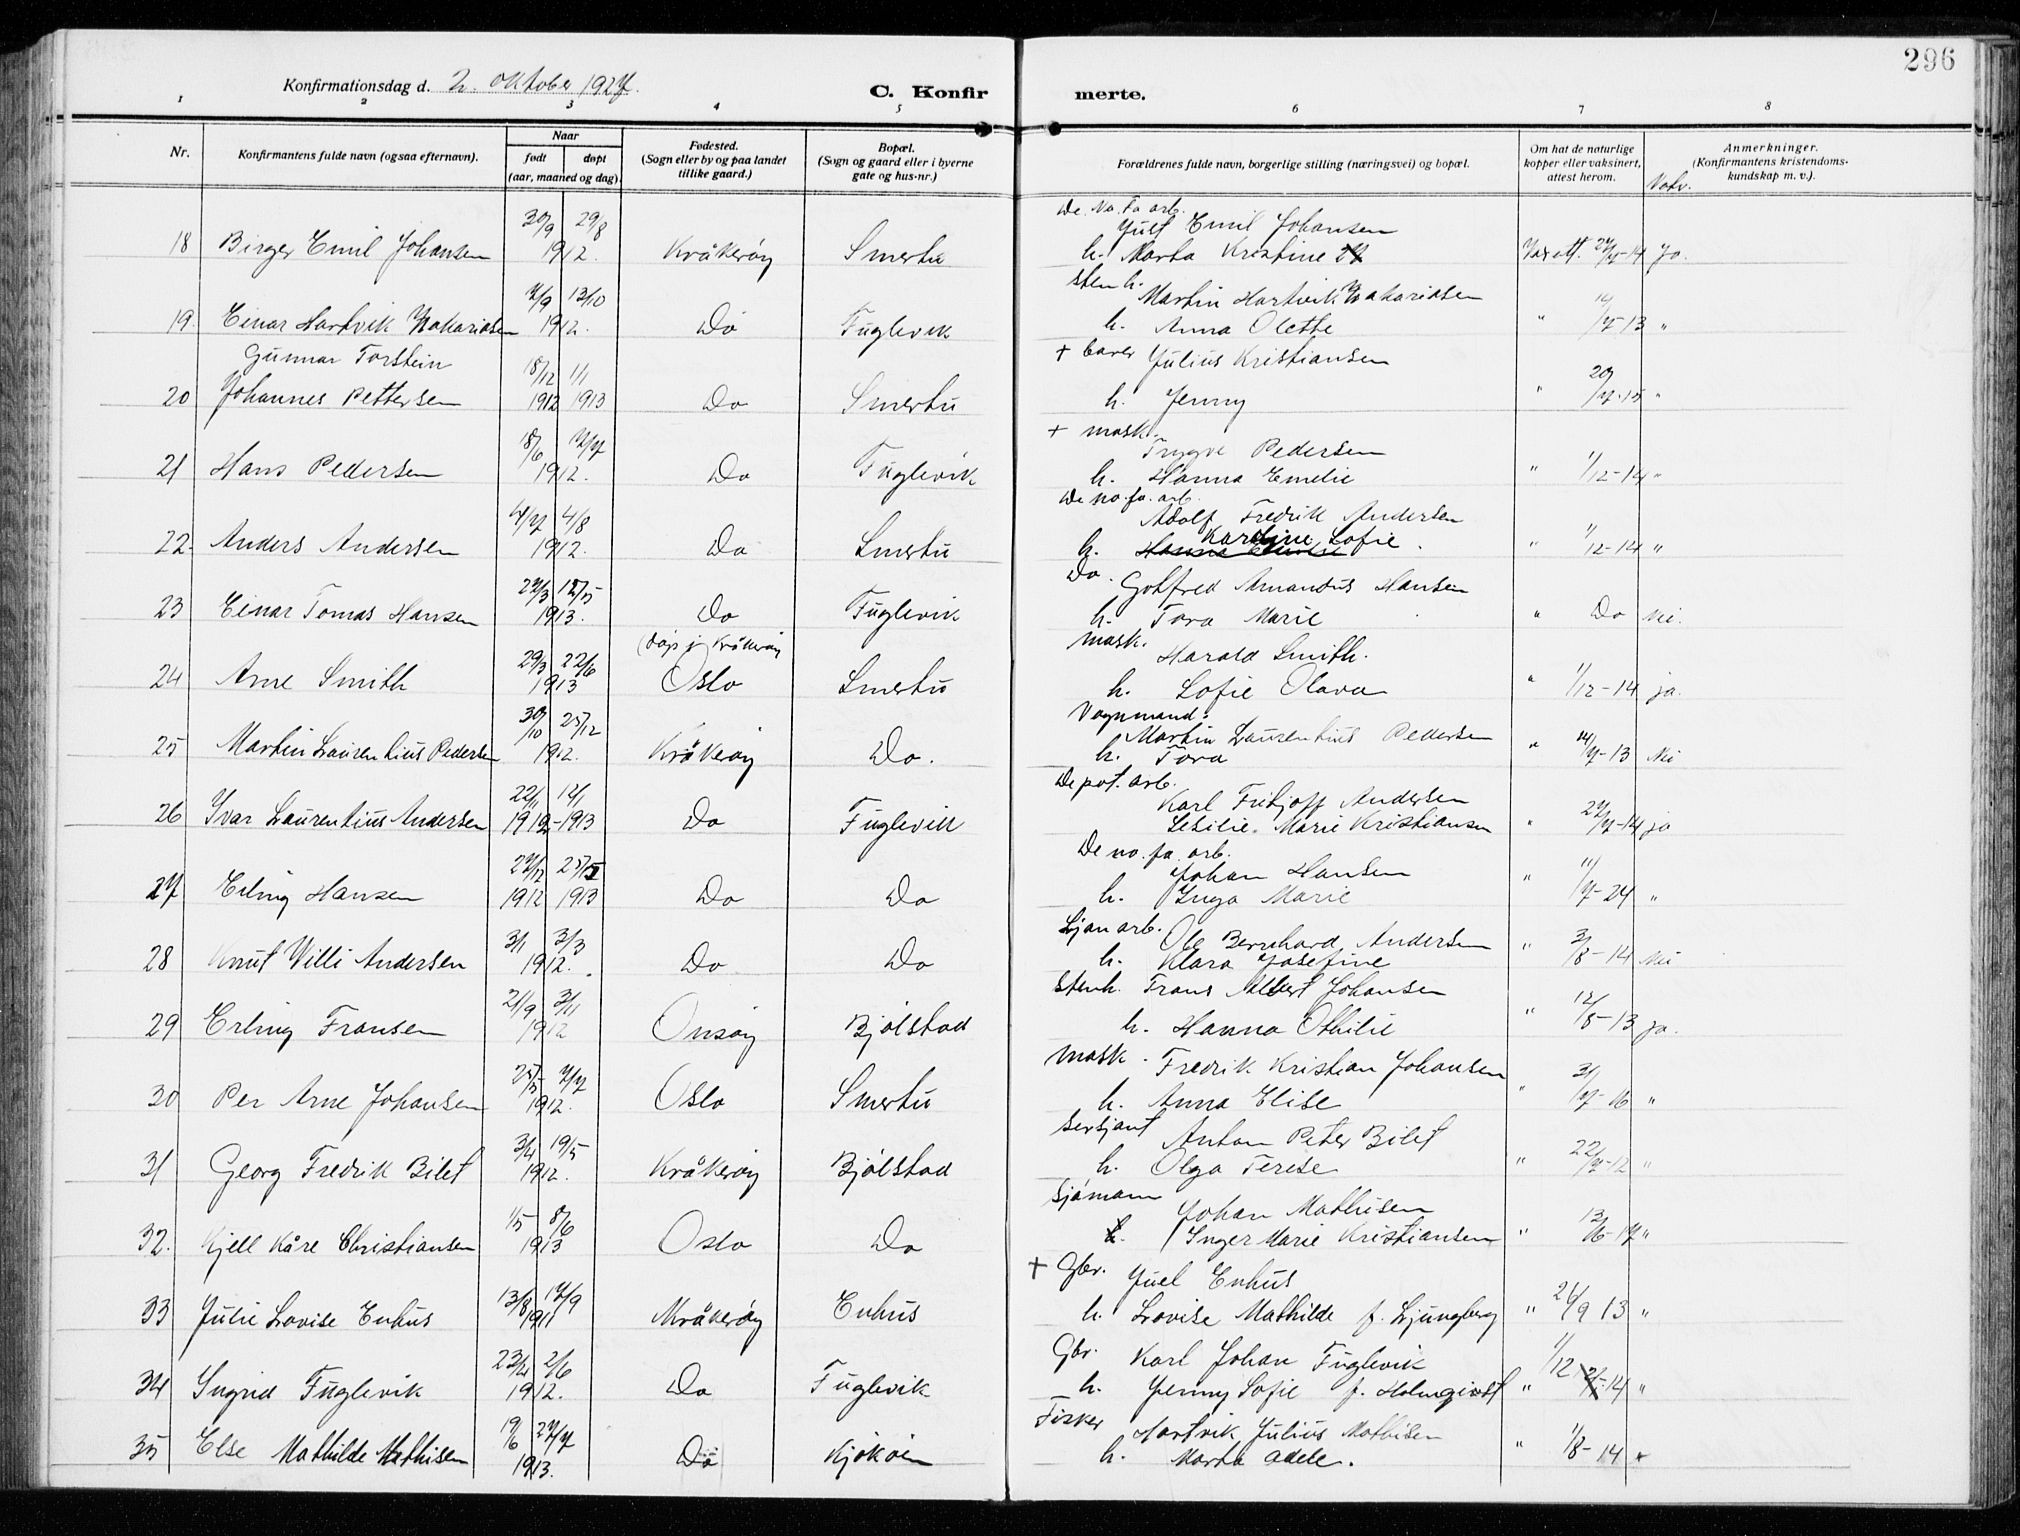 296
Konfirmationsdag d. 2. oktober 1927.
C. Konfirmerte.
1 2 3 4 5 6 7 8
Nr.
Konfirmantens fulde navn (ogsaa efternavn).
Naar
født døpt
(aar, maaned og dag).
Fødested.
(Sogn eller by og paa landet
tillike gaard.)
Bopæl.
(Sogn og gaard eller i byerne
gate og hus-nr.)
Forældrenes fulde navn, borgerlige stilling (næringsvei) og bopæl.
Om hat de naturlige
kopper eller vaksinert,
attest herom.
Anmerkninger.
(Konfirmantens kristendoms-
kundskap m. v.).
De. No. Fa arb.
30/9 29/8 Just Emil Johansen
18 Birger Emil Johansen 1912. Kråkerøy Smertu h. Marta Kristine Vax att. 27/7-14 Ja.
sten h.
7/9 13/10 Martin Hartvik Zakariasen
19. Einar Hartvik Zakariasen 1912. Do Fuglevik h. Anna Olette " 14/7-13 "
Gunnar Torstein 18/12 1/1 + barer Julius Kristiansen
20 Johannes Pettersen 1912 1913 Do Smertu h. Jenny " 20/7-15 "
+ mask.
18/6 7/7 Trygve Pedersen
21 Hans Pedersen 1912. Do Fuglevik h. Hanna Emelie " 1/12-14 "
De no. fa. arb.
4/7 4/8 Adolf Fredrik Andersen
22. Anders Andersen 1912. Do Smertu h. Karoline Sofie. " 1/12-14 "
Do.
27/3 12/5 Gotfred Amandus Hansen
23 Einar Tomas Hansen 1913. Do Fuglevik h. Tora Marie " Do Nei.
(døpt i Kråkerøy mask.
29/3 22/6 Harald Smith.
24 Arne Smith 1913 Oslo Smertu h. Sofie Olava " 1/12-14 ja.
Vognmand.
30/10 25/12 Martin Laurentius Pedersen
25 Martin Laurentius Pedersen 1912. Kråkerøy Do. h. Tora " 14/7-13 Nei
Depot. arb.
22/11 12/1 Karl Fritjoff Andersen
26 Ivar Laurentius Andersen 1912-1913 Do Fuglevik Sesilie Marie Kristiansen " 27/7-14 ja
De no. fa. arb.
27/12 1912 1913 Johan Hansen
27 Erling Hansen Do Do h. Inga Marie " 11/7-24 "
Ljan arb.
3/1 3/3 Ole Bernhard Andersen
28 Knut Willi Andersen 1912. Do Do h. Klara Josefine " 3/8-14 Nei
21/9 3/11 Stenh. Frans Albert Johansen
29 Erling Fransen 1912 Onsøy Bjølstad h. Hanna Othilie " 12/8-13 ja.
25/5 7/7 mask. Fredrik Kristian Johansen
30 Per Arne Johansen 1912. Oslo Smertu h. Anna Elise " 31/7-16 "
Sersjant
3/4 19/5 Anton Peter Bilet
31 Georg Fredrik Bilet 1912. Kråkerøy Bjølstad h. Olga Terese " 22/7-12 "
Sjømann
1/5 8/6 Johan Mathisen
32. Kjell Kåre Christiansen 1913 Oslo Do Inger Marie Kristiansen " 13/6-17 "
+ Gbr. Juel Enhus
13/8 17/9
33 Julie Lovise Enhus 1911 Kråkerøy Enhus h. Lovise Mathilde f. Ljungberg " 26/9 13 "
Gbr. Karl Johan Fuglevik
23/4 2/6 1/12
34 Ingrid Fuglevik 1912. Do Fuglevik h. Jenny Sofie f. Holmqvist " 14 "
Fisker
19/6 27/7 Hartvik Julius Mathisen
35 Else Mathilde Mathisen 1913. Do Kjøkøen h. Marta Adele. " 1/8-14 "